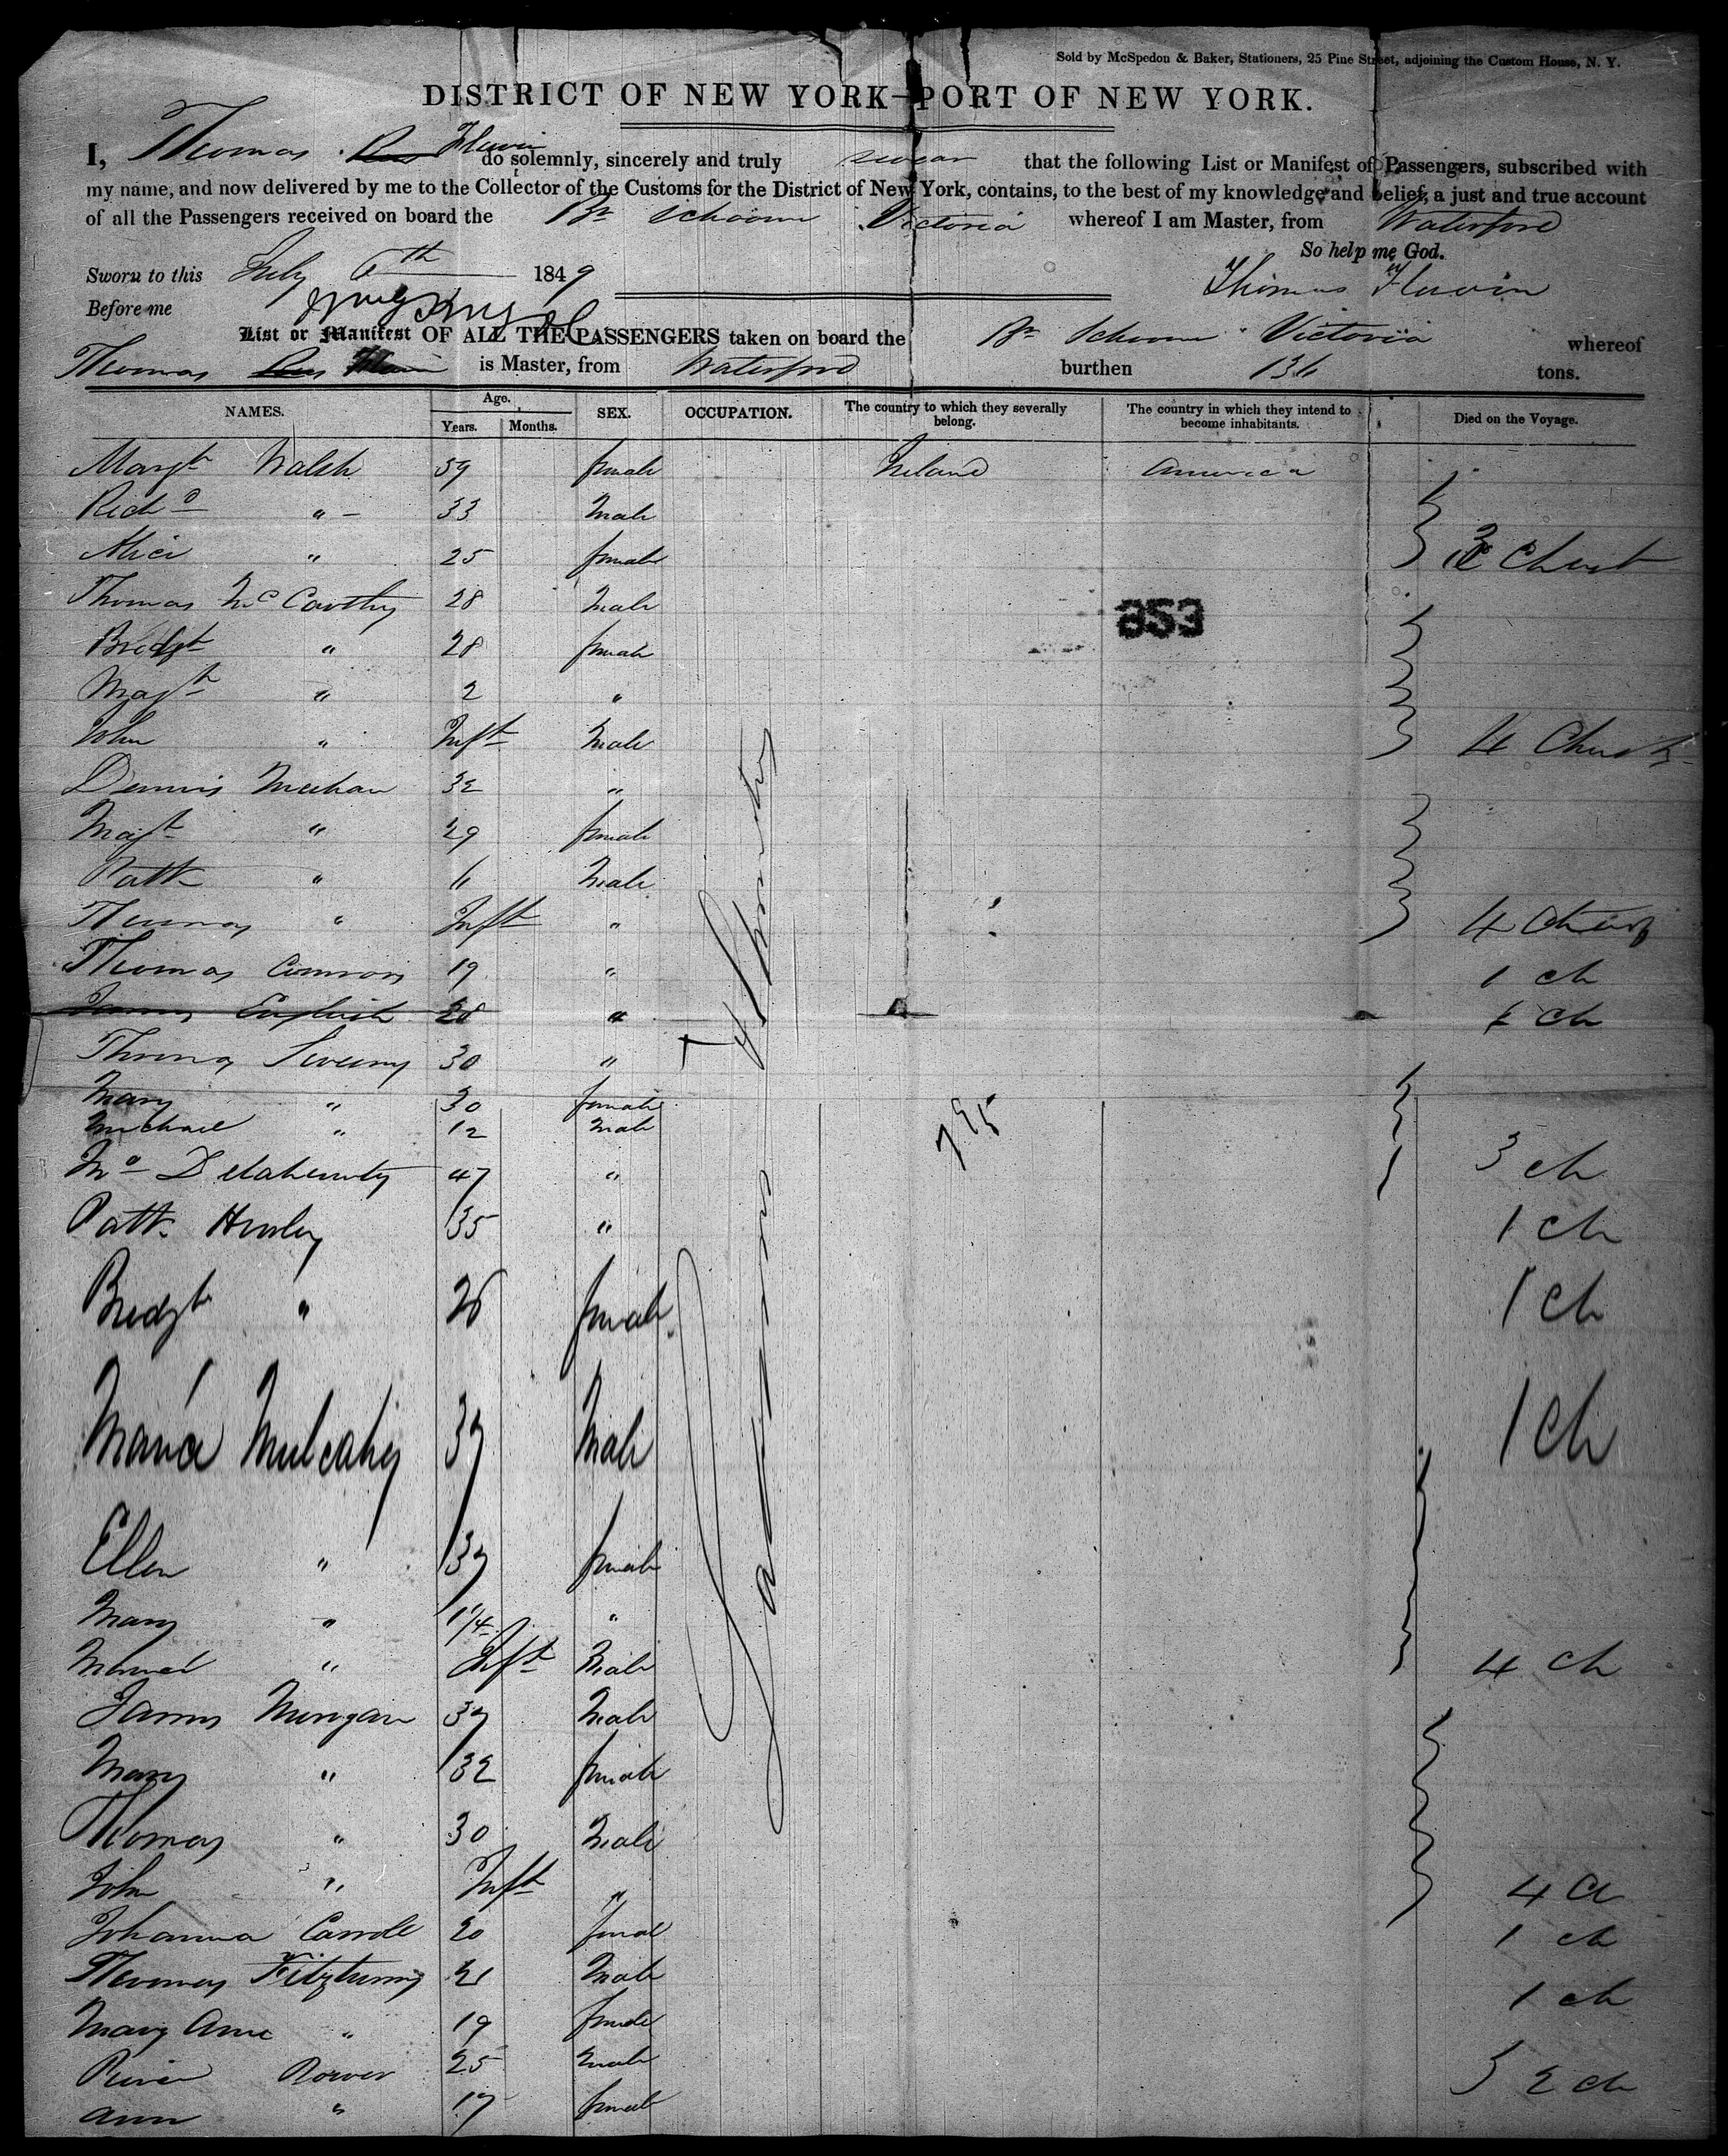 Sold by McSpedon & Baker, Stationers, 25 Pine Street, adjoining the Custom House, N. Y.
DISTRICT OF NEW YORK—PORT OF NEW YORK.
I, Thomas Flavin do solemnly, sincerely and truly swear that the following List or Manifest of Passengers, subscribed with
my name, and now delivered by me to the Collector of the Customs for the District of New York, contains, to the best of my knowledge and belief, a just and true account
of all the Passengers received on board the Br Schooner Victoria whereof I am Master, from Waterford
So help me God.
Sworn to this July 6th 1849
Thomas Flavin
Before me
List or Manifest OF ALL THE PASSENGERS taken on board the Br Schooner Victoria whereof
Thomas Flavin is Master, from Waterford burthen 136 tons.
NAMES. Age. Years. Months. SEX. OCCUPATION. The country to which they severally belong. The country in which they intend to become inhabitants. Died on the Voyage.
Margt Walsh 59 female Ireland America
Richd " 33 Male
Alice " 25 female 3 Chest
Thomas McCarthy 28 Male
853
Bridgt " 28 female
Magt " 2 "
John " Inft Male 4 Chests
Dennis Meehan 32 "
Magt " 29 female
Patk " 6 Male
Thomas " Inft " 4 Chests
Thomas Connors 19 " 1 ch
James English 28 " 1 ch
Thomas Sweeny 30 "
Mary " 30 female
Michael " 12 Male 3 ch
Delahunty 47 "
Patk 35 " 1 ch
Bredgt " 26 female 1 ch
Mulcahy 37 Male 1 ch
Ellen " 37 female
Mary " 1 1/4 "
" Inft Male 4 ch
James Mungan 37 Male
Mary " 32 female
Thomas " 30 Male
John " Inft " 4 ch
Johanna Carroll 20 female 1 ch
Thomas 21 Male 1 ch
Mary Ann " 19 female
25 Male 2 ch
Ann " 17 female